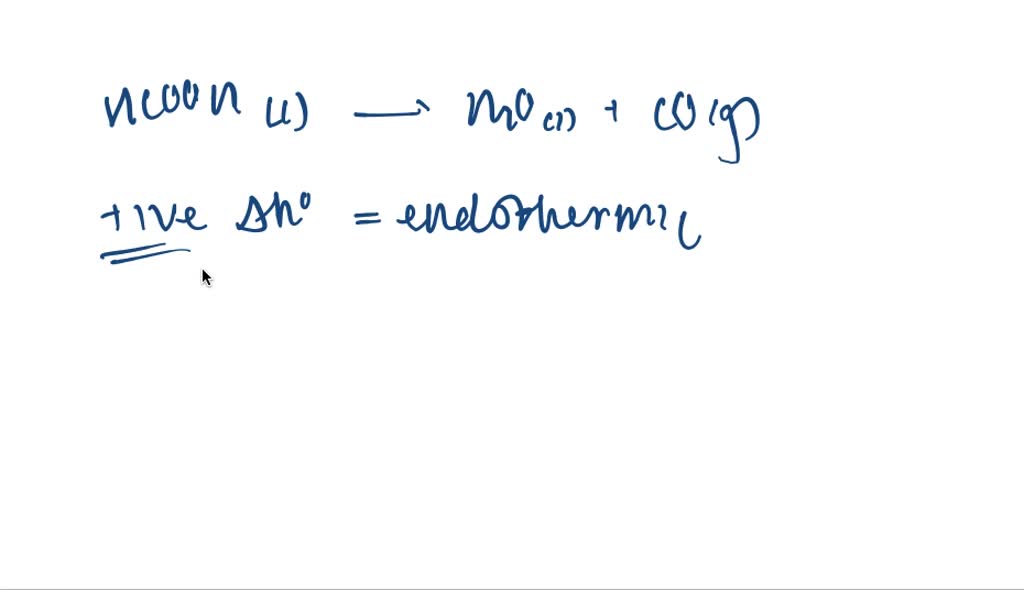 HCOOH (l) → H2O (l) + CO (g)
+ive ΔH° = endothermic